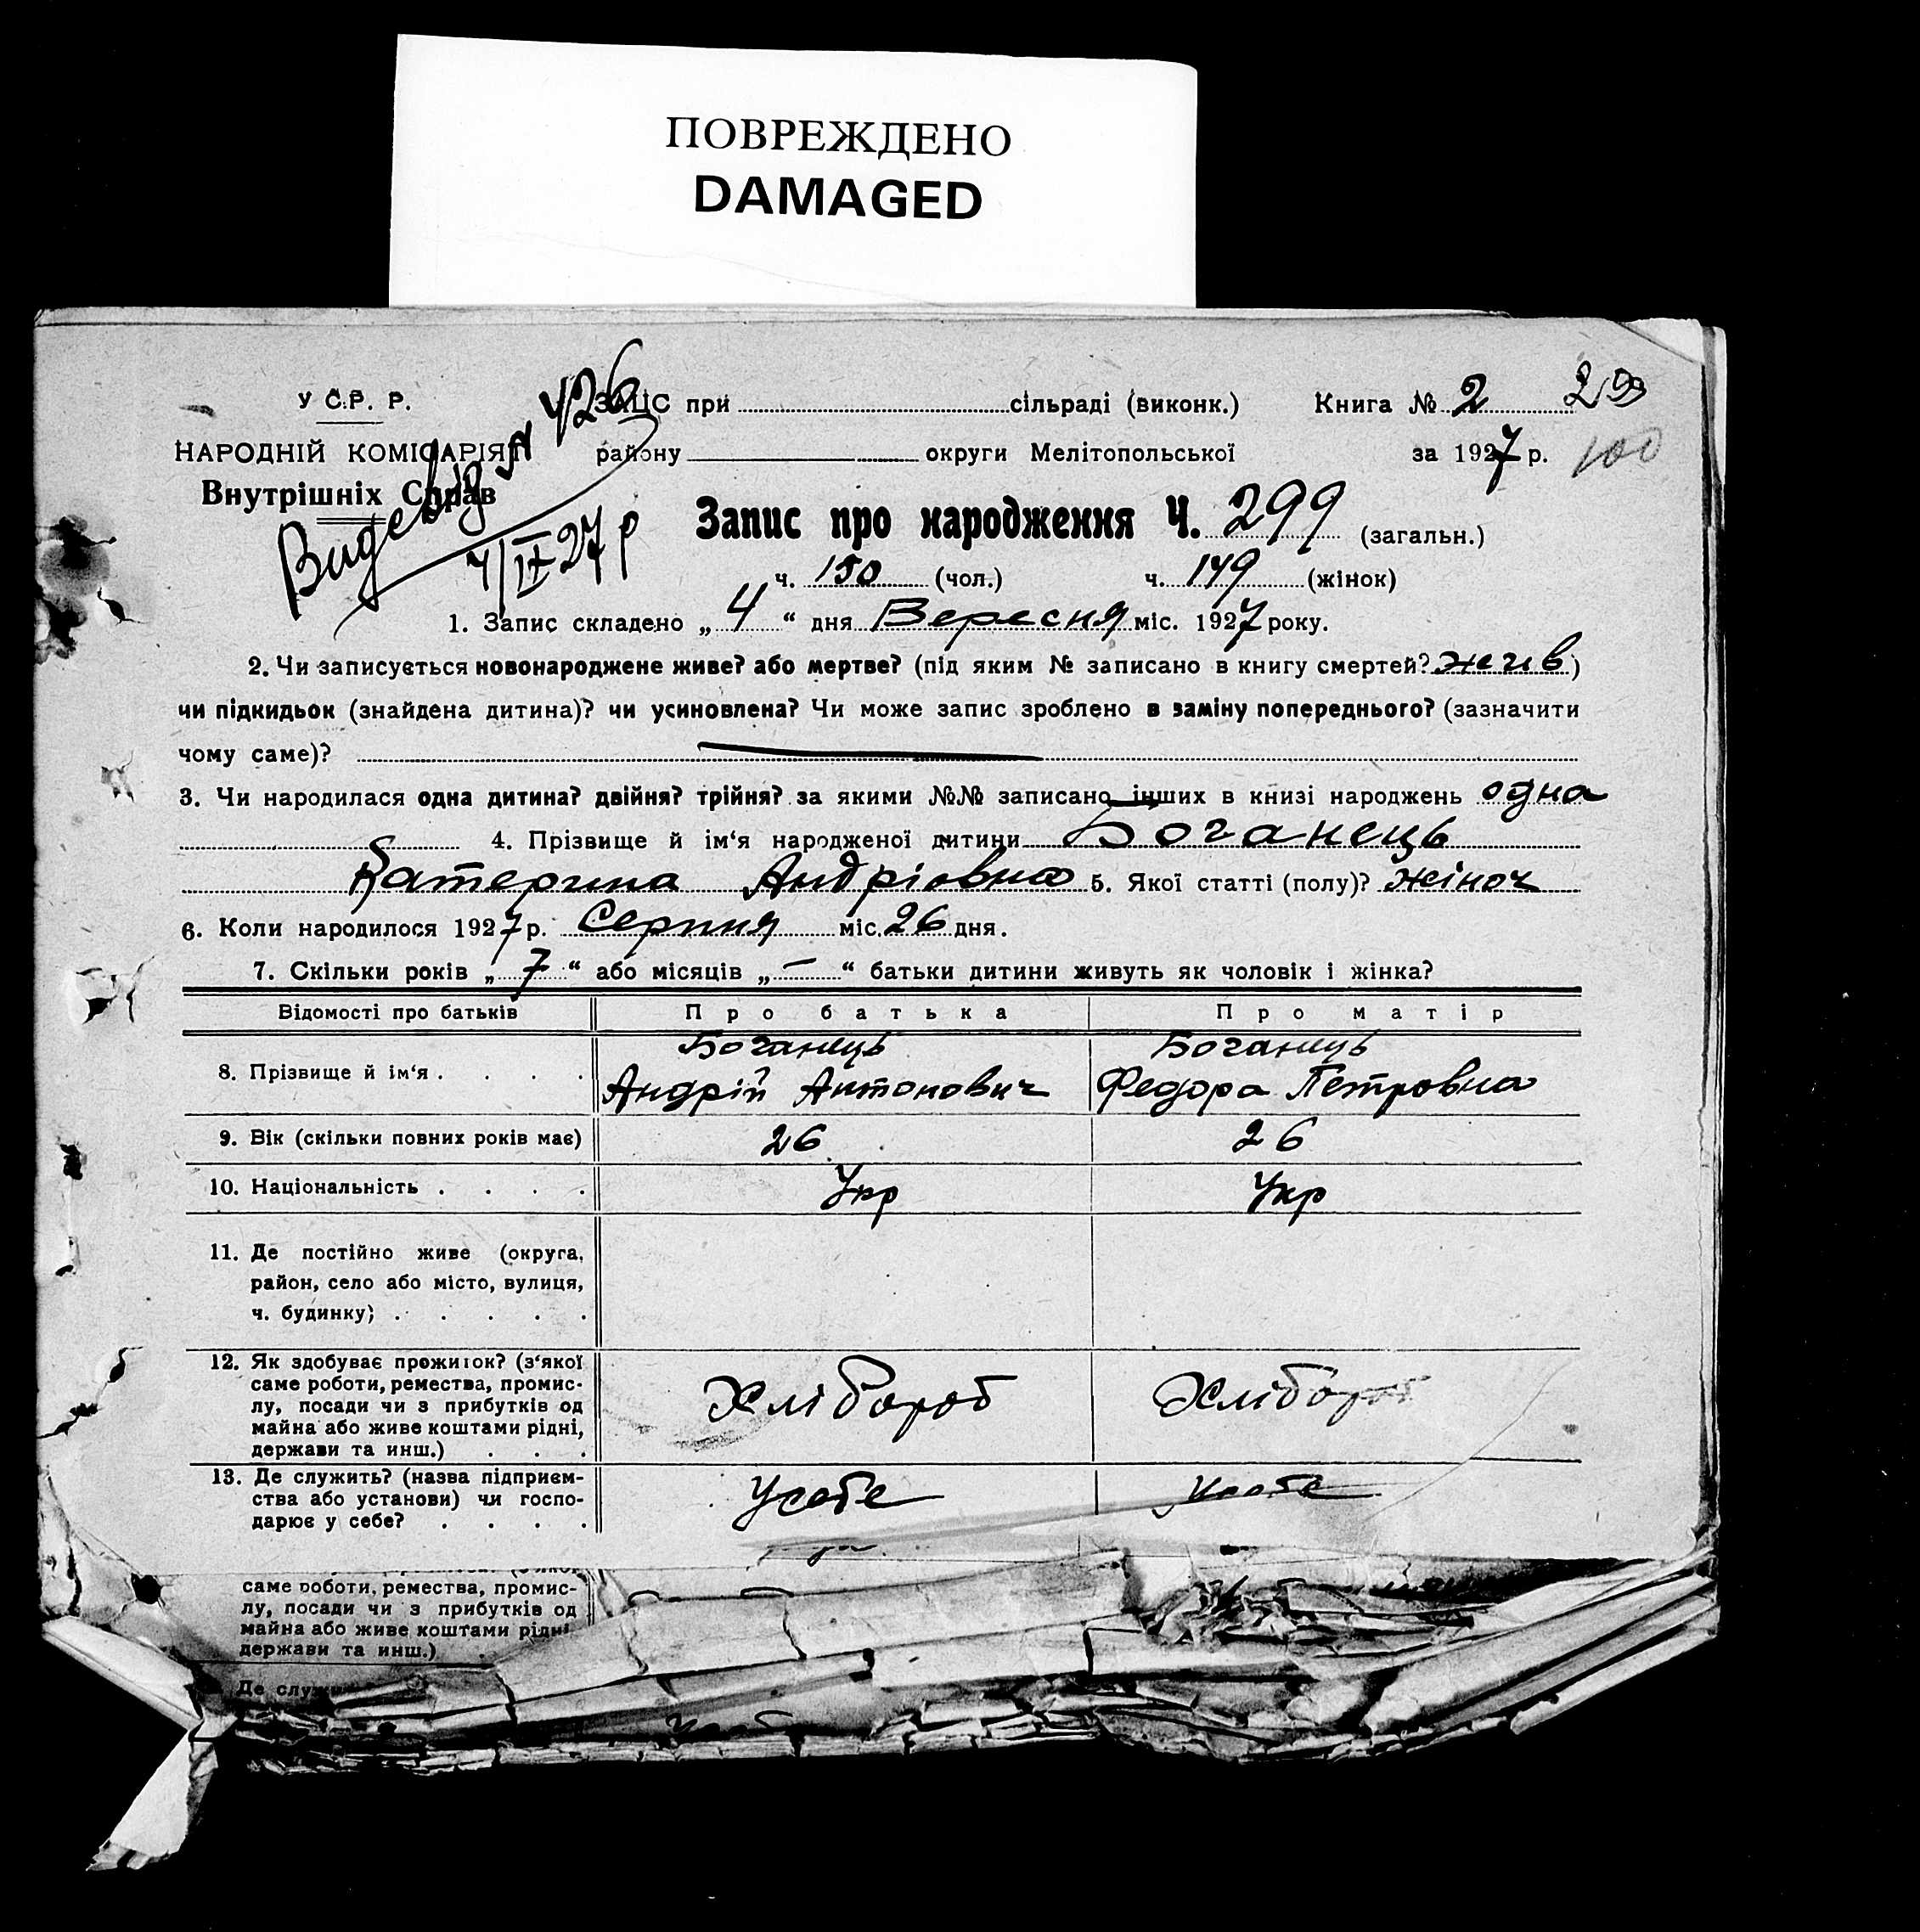 ПОВРЕЖДЕНО
DAMAGED
У С.Р. Р.
ЗАЦС при сільраді (виконк.) Книга № 2 299
НАРОДНІЙ КОМІСАРІЯТ району округи Мелітопольської за 1927 р. 100
Внутрішніх Справ
Вид 426
4/IX 27 р
Запис про народження Ч. 299 (загальн.)
ч. 150 (чол.) ч. 149 (жінок)
1. Запис складено „ 4 “ дня Вересня міс. 1927 року.
2. Чи записується новонароджене живе? або мертве? (під яким № записано в книгу смертей? жив)
чи підкидьок (знайдена дитина)? чи усиновлена? Чи може запис зроблено в заміну попереднього? (зазначити
чому саме)?
3. Чи народилася одна дитина? двійня? трійня? за якими №№ записано інших в книзі народжень одна
4. Прізвище й ім‘я народженої дитини Боганець
Катерина Андріовна 5. Якої статті (полу)? жіноч
6. Коли народилося 1927 р. Серпня міс. 26 дня.
7. Скільки років „ 7 “ або місяців „ — “ батьки дитини живуть як чоловік і жінка?
Відомості про батьків Про батька Про матір
Боганець Боганець
8. Прізвище й ім‘я . . . . Андрій Антонович Федора Петровна
9. Вік (скільки повних років має) 26 26
10. Національність . . . . Укр Укр
11. Де постійно живе (округа,
район, село або місто, вулиця,
ч. будинку) . . . . .
12. Як здобуває прожиток? (з‘якої
саме роботи, ремества, промис-
лу, посади чи з прибутків од
майна або живе коштами рідні,
держави та инш.) . . .
Хлібороб Хлібороб
13. Де служить? (назва підприєм-
ства або установи) чи госпо-
дарює у себе? . . . .
Усебе Усебе
саме роботи, ремества, промис-
лу, посади чи з прибутків од
майна або живе коштами рідні
держави та инш.) .
Де служ